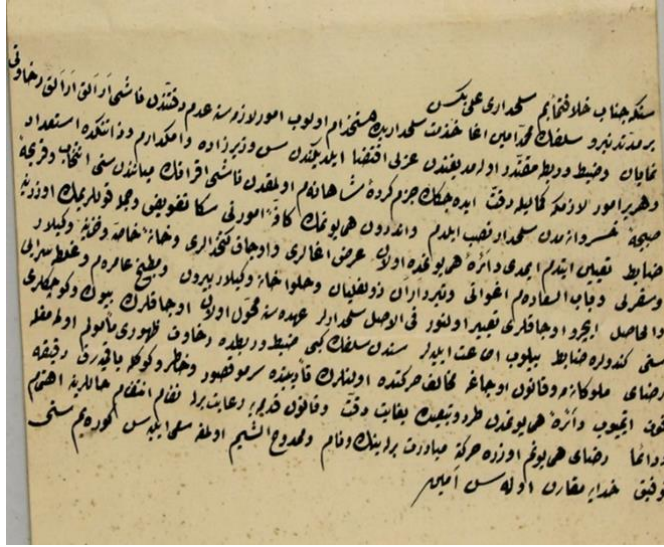 سنكه جناب خلافتمآبم سلحدارى على بكسن
بر مدتدنبرو سلفك محمد امين اغا خدمت سلحداريده مستخدم اولوب امور لازمه سنه عدم دقتندن ناشى ارالق ارالق رخاوتى
نمايان وضبط وربطه مقتدر اولمديغندن عزلى اقتضا ايلديكندن سن وزيرزاده وامكدارم وذاتكده استعداد
وهر بر امور لازمه كماليله دقت ايده جكك جزم كرده شاهانه م اولمقدن ناشى اقرانك مياننده سنى انتخاب وقريحه
صبيحه خسروانه مدن سلحدار نصب ايلدم واندرون همايونمك كافه امورنى سكا تفويض وجمله قوللريمك اوزرينه
ضابط تعيين ايتدم ايمدى دائره همايونمده اولان عرض اغالرى واوجاق كتخدالرى وخانه خاصه وخزينه وكيلار
وسفرلى وباب السعاده م اغواتى وتبرداران زولفليان وحلواخانه وكيلار بيرون ومطبخ عامره م وغلطه سرايى
والحاصل ايچرو اوجاقلرى تعبير اولنور فى الاصل سلحدارلر عهده سنه محول اولان اوجاقلرك بيوك وكوچكلرى
سنى كندولره ضابط بيلوب اطاعت ايدلر سندن سلفك كبى ضبط وربطده رخاوت ظهورى مأمولم اولمamغله
رضاى ملوكانه م وقانون اوجاغه مخالف حركتده اولنلرك تأديبنده سرمو قصور وخاطر وكوكله باقميه رق دقيقه
فوت ايتميوب دائره همايونمدن طرد وتبعيده بغايت دقت وقانون قديمه رعايت برله نظام انتظام حاللرينه اهتمام
ودائما رضاى همايونم اوزره حركته مبادرت برله نيكنام وممدوح الشيم اولمغه سعى ايده سن كوره يم سنى
توفيق خدايه مقارن اوله سن آمين